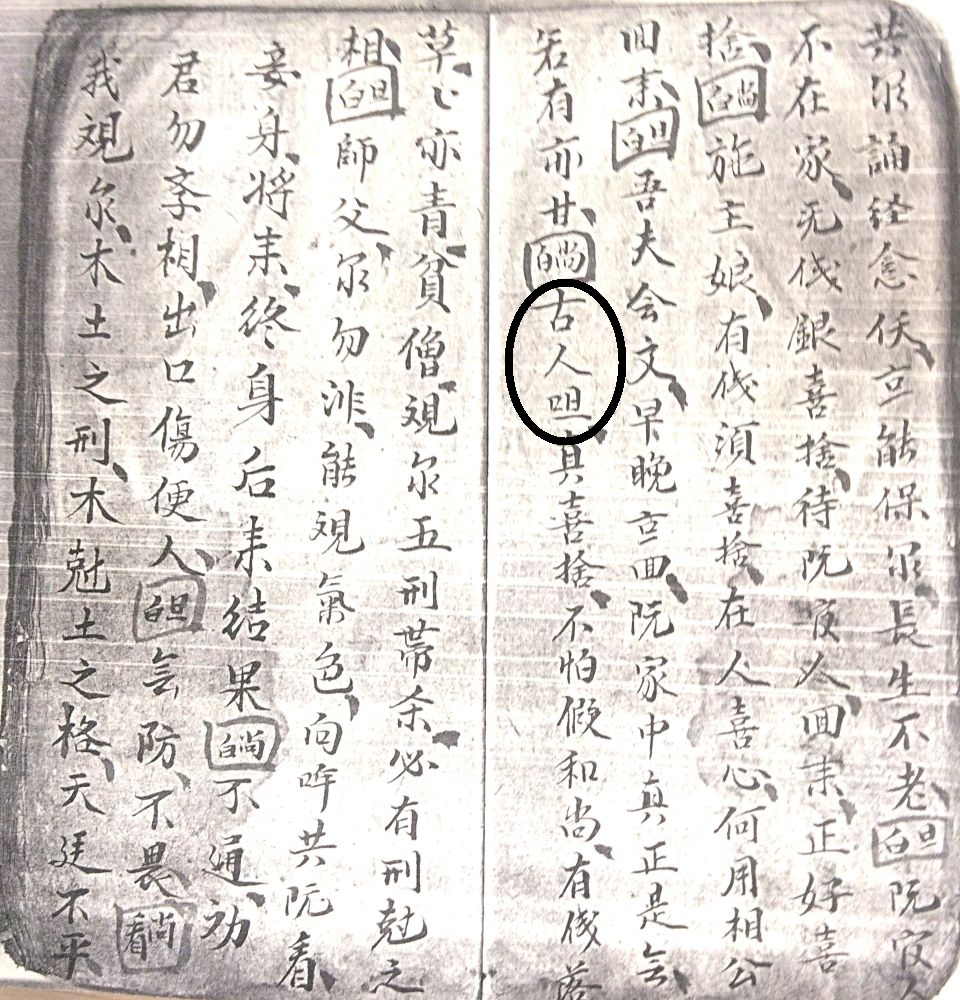 共尔誦経念仸立能保尔長生不老白旦阮官人
不在家无伐銀喜捨待阮官人回耒正好喜
捨白尚施主娘有伐須喜捨在人喜心何用相公
回耒白旦吾夫会文早晚立回阮家中真正是会
若有亦廿白尚古人呾真喜捨不怕假和尚有伐落
草〻亦青貧僧覌尔五刑帶杀必有刑尅之
相白旦師父尔勿誹能覌氣色向咩共阮看
妾身將耒終身后耒結果白尚不通劝
君勿李相出口傷便人白旦会防不畏看尚
我覌尔木土之刑木尅土之格天廷不平